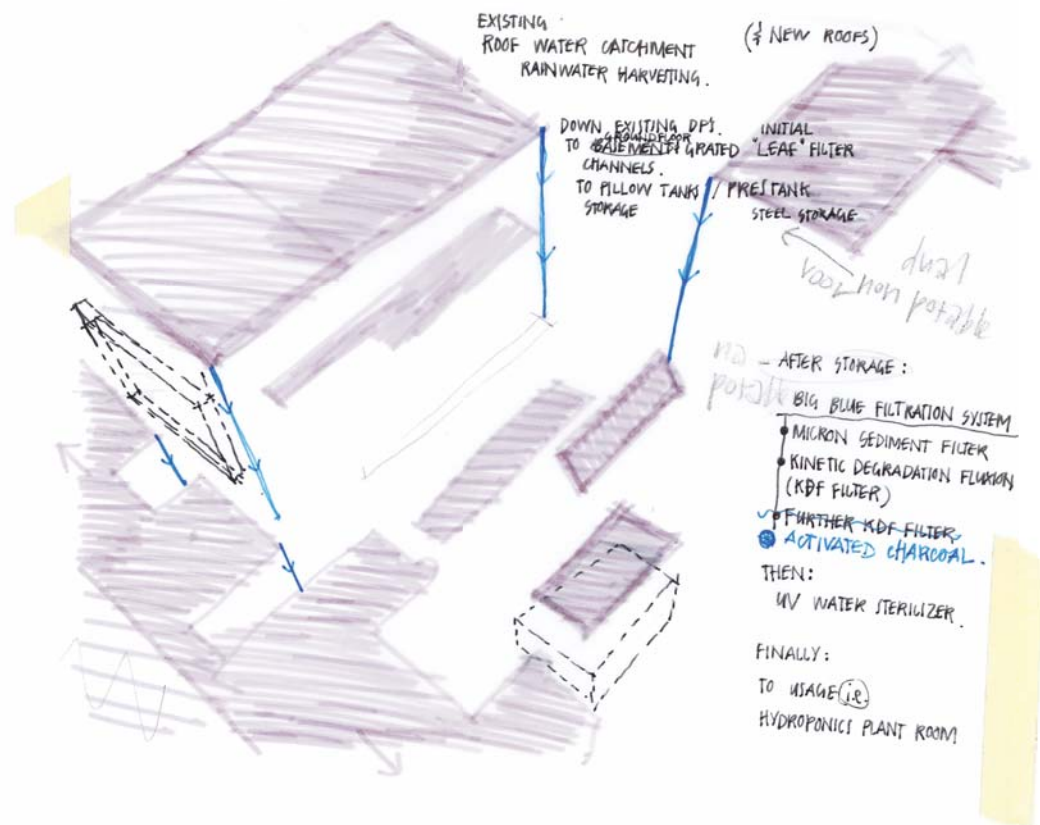 EXISTING
ROOF WATER CATCHMENT
RAINWATER HARVESTING.
(& NEW ROOFS)
DOWN EXISTING DP'S.
GROUND FLOOR
TO BASEMENT GRATED
CHANNELS.
TO PILLOW TANKS / PRESTANK
STORAGE
STEEL STORAGE
INITIAL
"LEAF" FILTER
AFTER STORAGE:
BIG BLUE FILTRATION SYSTEM
MICRON SEDIMENT FILTER
KINETIC DEGRADATION FLUXION
(KDF FILTER)
FURTHER KDF FILTER
ACTIVATED CHARCOAL.
THEN:
UV WATER STERILIZER.
FINALLY:
TO USAGE i.e.
HYDROPONICS PLANT ROOM